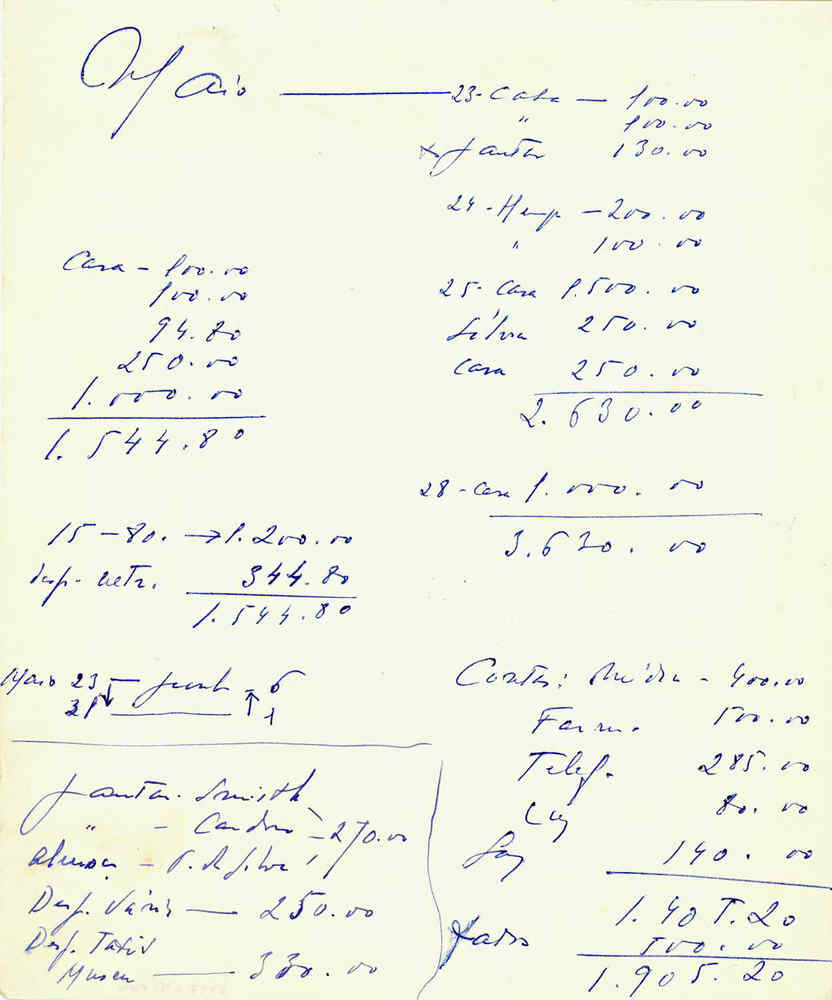 Maio — 23 - Casa — 100.00
" 100.00
x Jantar 130.00
24 - Hemp — 200.00
" 100.00
25 - Casa 1.500.00
Silva 250.00
Casa 250.00
2.630.00
28 - Casa 1.000.00
3.630.00
Casa — 100.00
100.00
94.80
250.00
1.000.00
1.544.80
15 — 80. → 1.200.00
Desp. retr. 344.80
1.544.80
Maio 23 — - 6
31 — 1
Jantar. Smith
" - — 270.00
Almoço — Silva
Desp. Várias — 250.00
Desp. Taxis
Museu — 330.00
Contas: - 400.00
Farm. 500.00
Telef. 285.00
Luz 80.00
Gaz 140.00
1.405.20
500.00
1.905.20